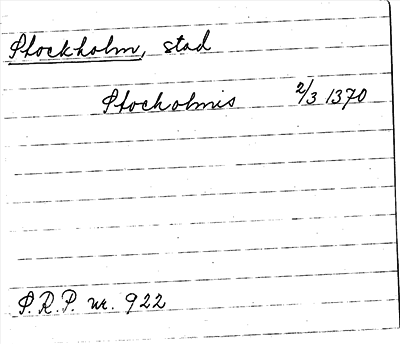 Stockholm, stad
Stocholmis 2/3 1370
S.R.P. nr. 922